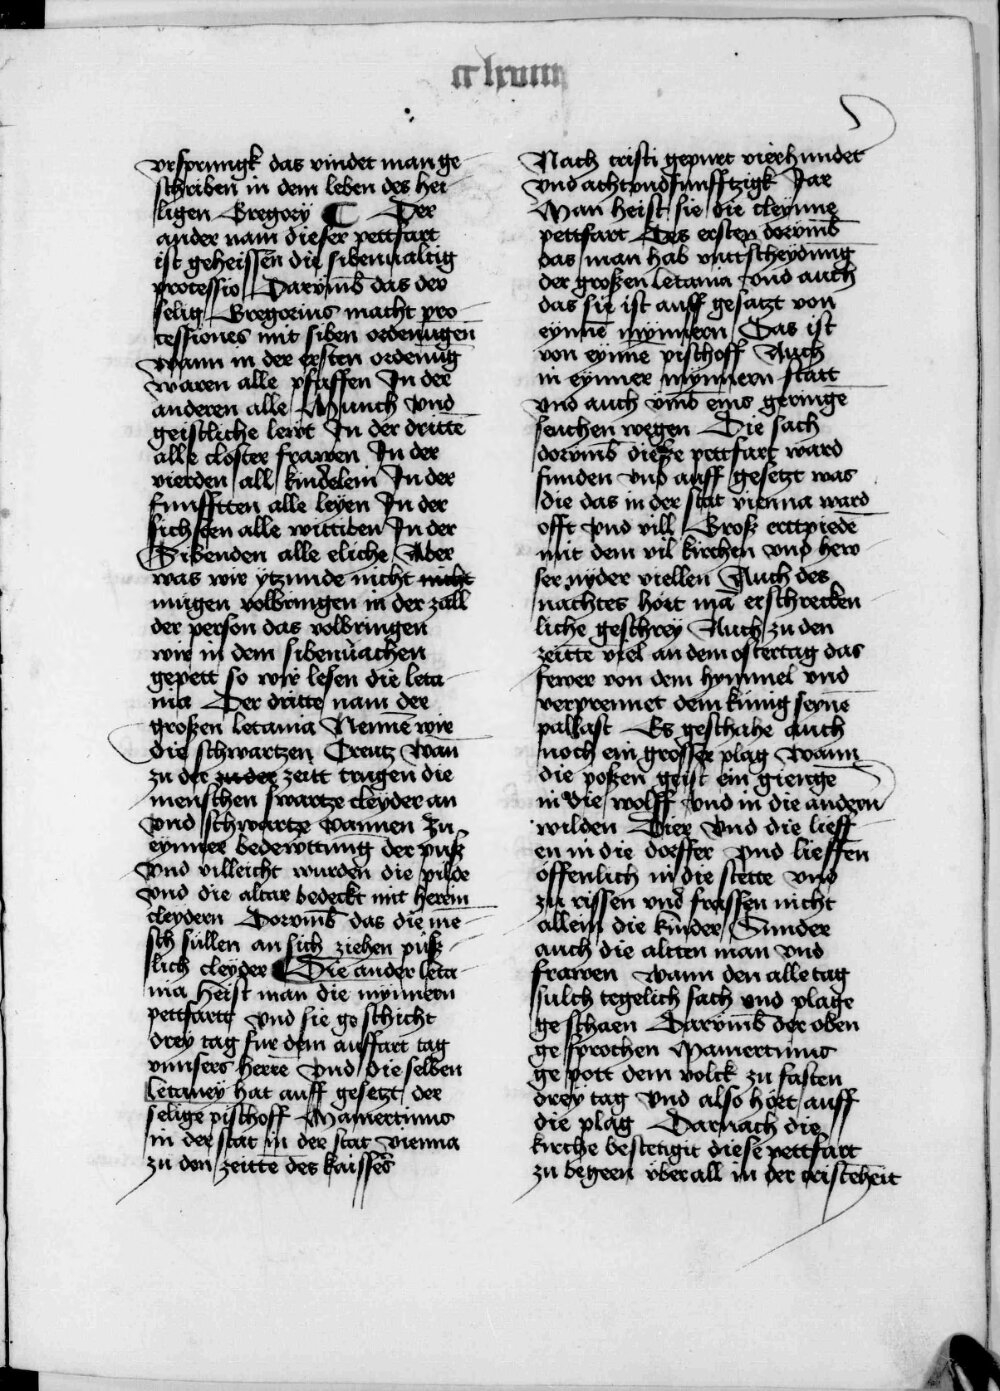 cclxviiij
vrsprungk das vindet man ge-
schriben in dem leben des hei-
ligen Gregorÿ ¶ Der
ander nam dieser pettfart
ist geheissen die sibenualtig
processio Darvmb das der
selig Gregorius macht pro-
cessiones mit siben ordenugen
wann in der ersten ordenug
waren alle pfaffen In der
anderen alle Munch vnd
geistliche lewt In der dritte
alle closter frawen In der
vierden all kindelein In der
funfften alle leyen In der
sichsten alle wittiben In der
Sibenden alle eliche Aber
was wir ytzunde nicht nicht
mugen volbringen in der zall
der person das volbringen
wir in dem sibenuachen
gepett so wir lesen die leta-
nia Der dritte nam der
großen letania Nenne wir
die schwartzen Creutz wan
zu der zu der zeitt trugen die
menschen swartze cleyder an
vnd schwartze vannen zu
eynner bedewttung der puß
vnd villeicht wurden die pilde
vnd die altar bedeckt mit herein
cleydern Dorvmb das die me-
sch sullen an sich ziehen puß-
lich cleyder ¶ Die ander leta-
nia heist man die mynnern
pettfarte vnd sie geschicht
drey tag fur dem auffart tag
vnnsers herre vnd die selben
letaney hat auff gesetzt der
selige pischoff Mamertinus
in der stat in der stat vienna
zu den zeitte des kaissers
Nach cristi gepurt vierhundet
vnd achtvndfunfftzigk Jar
Man heist sie die cleynne
pettfart Des ersten dorvmb
das man hab vnttscheydung
der großen letania vnd auch
das sie ist auff gesatzt von
eynne mynnern Das ist
von eynne pischoff Auch
in eynner mynnern statt
vnd auch vmb eins geringe
seuchen wegen Die sach
dorvmb dieße pettfart ward
funden vnd auff gesetzt was
die das in der stat vienna ward
offt vnd vill Groß erttpiede
mit dem vil kirchen vnd hew-
ser nyder viellen Auch des
nachtes hört mā erschrecken-
liche geschrey Auch zu den
zeitte viel an dem ostertag das
fewer von dem hymmel vnd
verprennet dem kunig seyne
pallast Es geschahe auch
noch ein grosser plag wann
die poßen geist ein gienge
in die wolff vnd in die andern
wilden Tier vnd die lieff
en in die dorffer vnd lieffen
offenlich in die stette vnd
zu rissen vnd frassen nicht
allein die kinder Sunder
auch die altten man vnd
frawen wann den alle tag
sulch tegelich sach vnd plage
geschaen Darvmb der oben
gesprochen Mamertinus
gepott dem volck zu fasten
drey tag vnd also hört auff
die plag Darnach die
kirche bestetigit diese pettfart
zu begeen vberall in der cristeheit